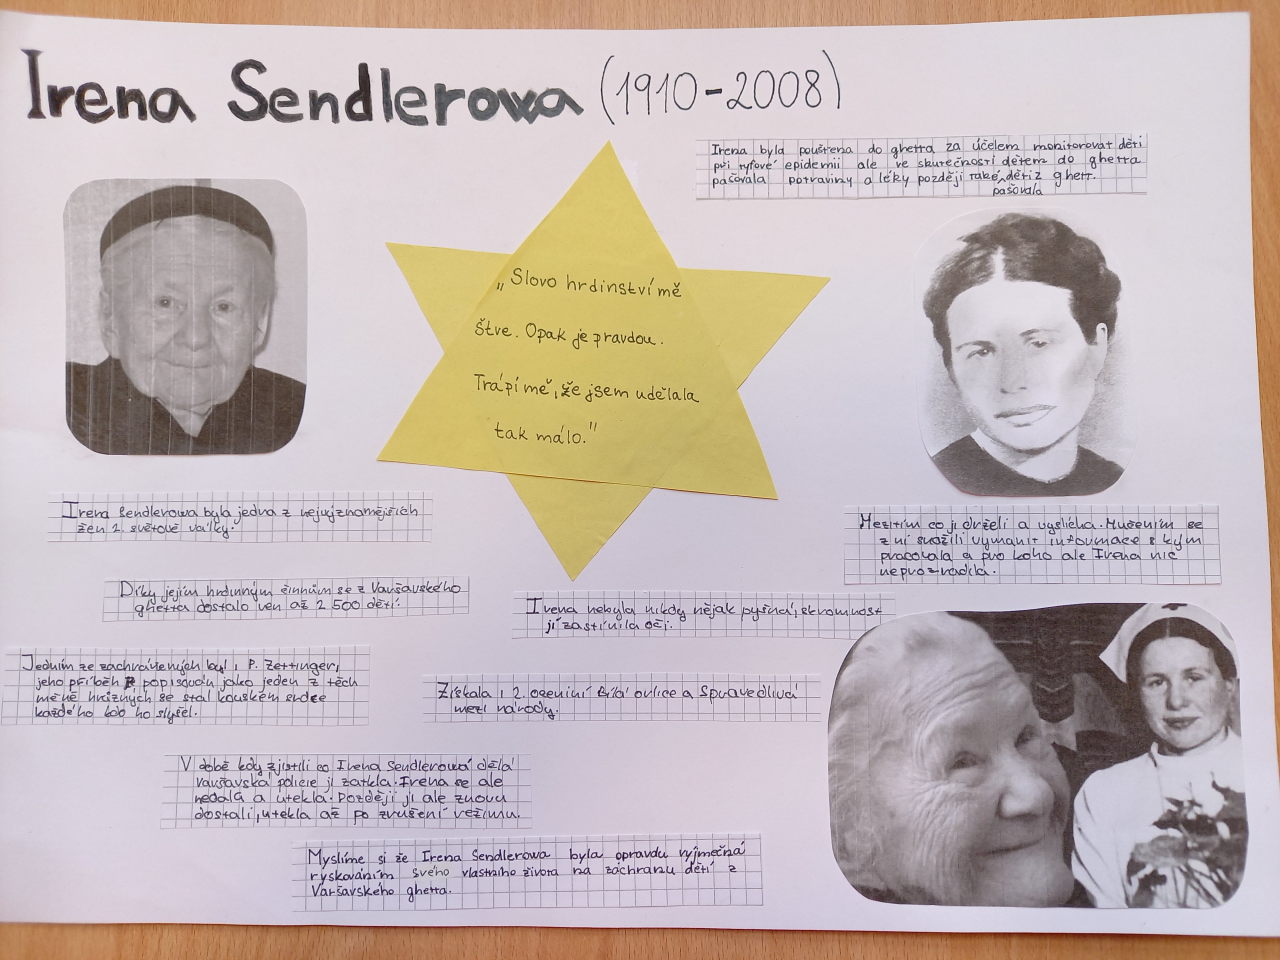 Irena Sendlerowa (1910-2008)
Irena byla pouštena do ghetta za účelem monitorovat děti
při tyfové epidemii ale ve skutečnosti dětem do ghetta
pašovala potraviny a léky později také děti z ghett.
pašovala
„Slovo hrdinství mě
štve. Opak je pravdou.
Trápí mě, že jsem udělala
tak málo."
Irena Sendlerowa byla jedna z nejvýznamějších
žen 2. světové války.
Díky jejím hrdinným činnům se z Varšavského
ghetta dostalo ven až 2 500 dětí.
Jedním ze zachráněných byl i P. Zettinger,
jeho příběh popisován jako jeden z těch
méně hrůzných se stal kouskem srdce
každého kdo ho slyšel.
V době kdy zjistili co Irena Sendlerowá dělá
varšavská policie ji zatkla. Irena se ale
nedala a utekla. Později ji ale znovu
dostali, utekla až po zrušení režimu.
Mezitím co ji drželi a vyslíchá. Mučením se
z ní snažili vymánit informace s kým
pracovala a pro koho ale Irena nic
neprozradila.
Irena nebyla nikdy nějak pyšná, skromnost
jí zastínila oči.
Získala i 2. ocenění Bílá orlice a Spravedlivá
mezi národy.
Myslíme si že Irena Sendlerowa byla opravdu vyjmečná
ryskováním svého vlastního života na záchranu dětí z
Varšavského ghetta.